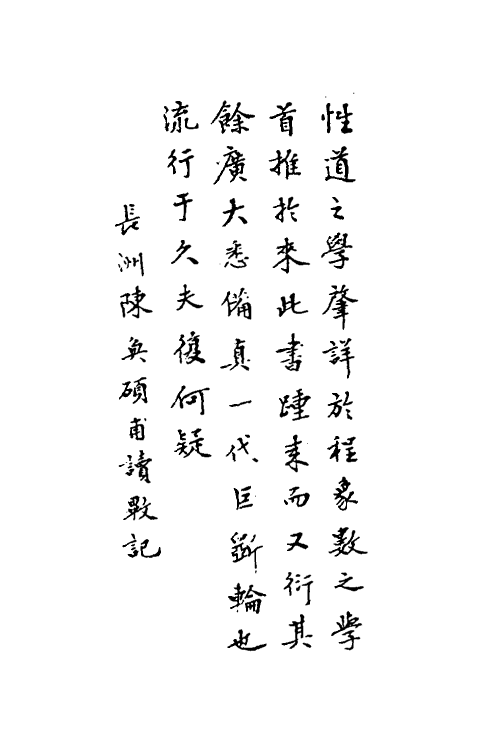 性道之學肇詳於程象數之學
首推於來此書踵來而又衍其
餘廣大悉備真一代巨斵輪也
流行于久夫復何疑
長洲陳奐碩甫讀斁記